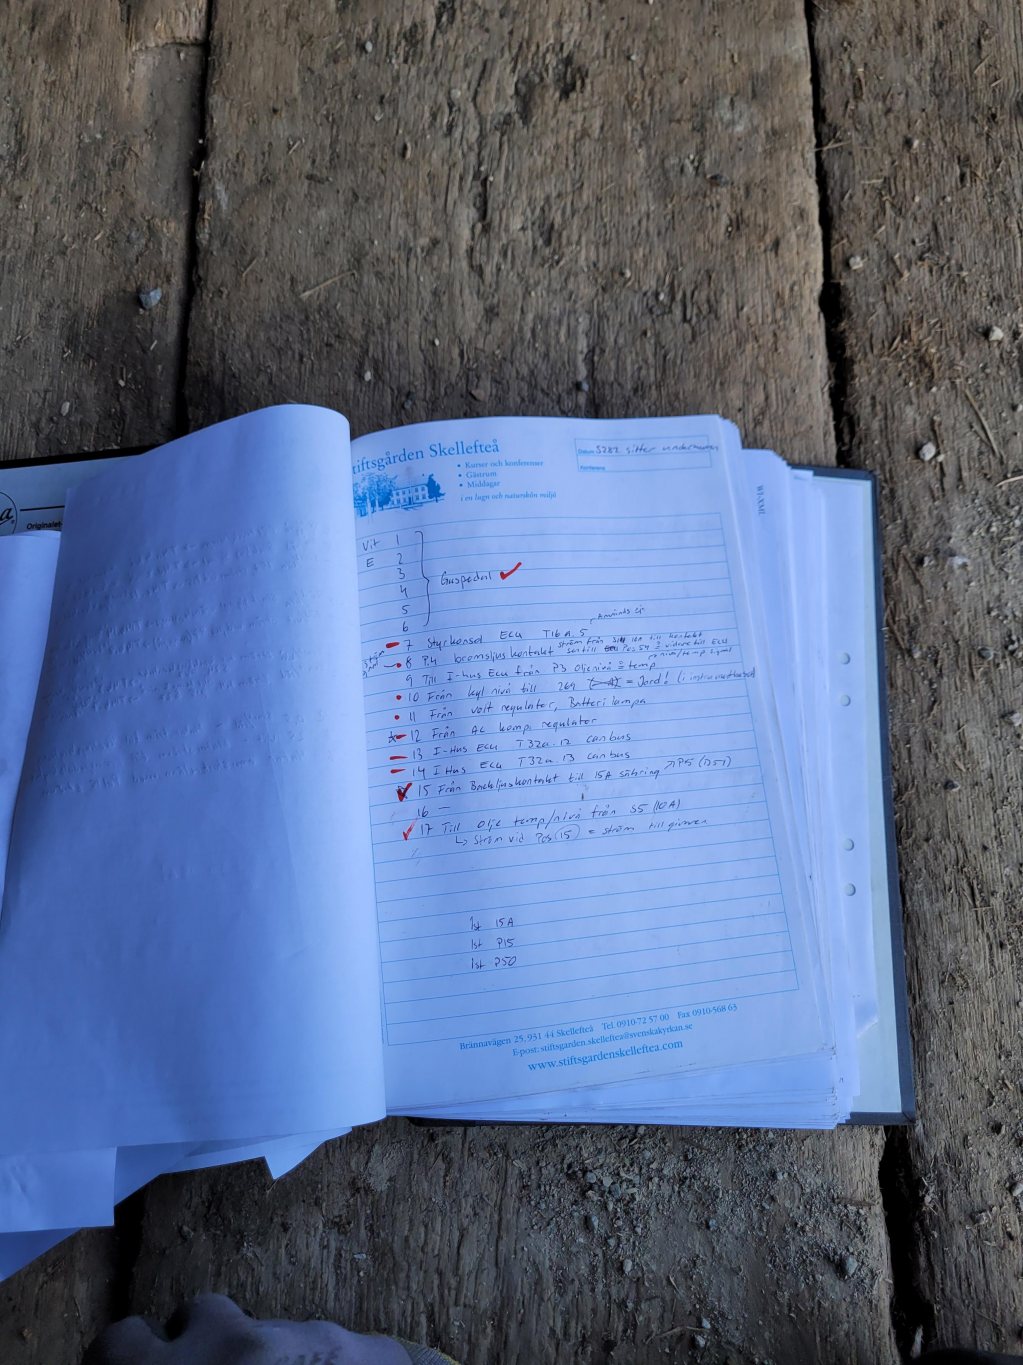 Originalet
Stiftsgården Skellefteå
• Kurser och konferenser
• Gästrum
• Middagar
i en lugn och naturskön miljö
Datum 5282 sitter
Konferens
WI-XM!
Vit 1
E 2
3
4
5
6
Gaspedal
Används ej
7 Styrkonsol ECU T16A 5
8 P4 bromsljuskontakt ström från 10A till kontakt
sen till Pos 54 & vidare till ECU
9 Till I-hus ECU från P3 oljenivå & temp
10 Från kyl nivå till = Jord! (i
11 Från volt regulator, Batteri lampa
12 Från AC komp regulator
13 I-Hus ECU T32a.12 canbus
14 I Hus ECU T32a.13 canbus
15 Från Backljuskontakt till 15A säkring
16 —
17 Till olje temp/nivå från S5 (10A)
Ström vid Pos (15) = ström till givaren
1st 15A
1st P15
1st P50
Brännavägen 25, 931 44 Skellefteå Tel 0910-72 57 00 Fax 0910-568 63
E-post: stiftsgarden.skelleftea@svenskakyrkan.se
www.stiftsgardenskelleftea.com